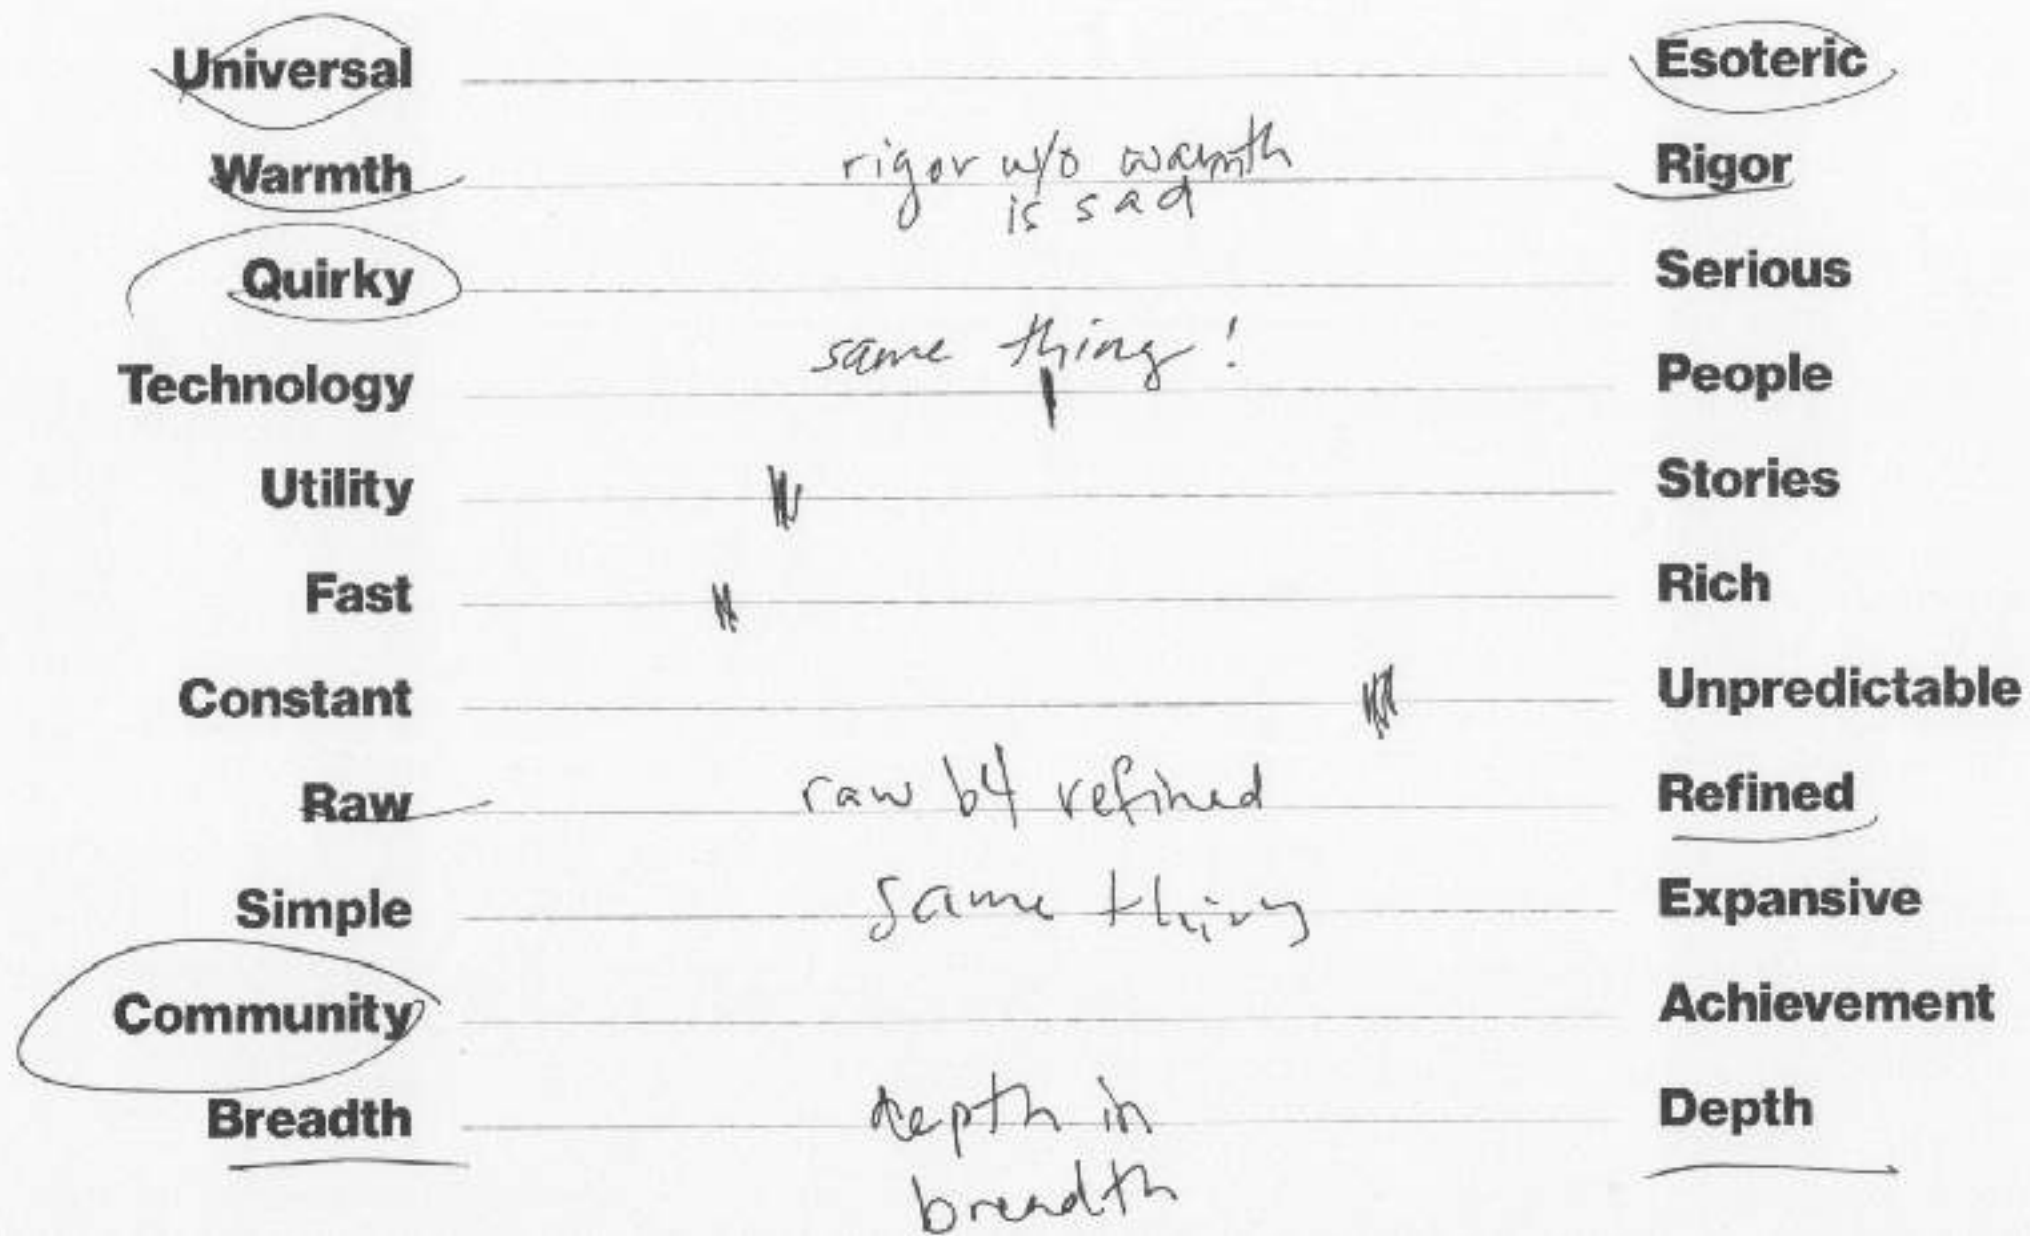 Universal Esoteric
Warmth rigor w/o warmth Rigor
is sad
Quirky Serious
same thing!
Technology People
Utility Stories
Fast Rich
Constant Unpredictable
Raw raw b4 refined Refined
Simple same thing Expansive
Community Achievement
Breadth depth in Depth
breadth